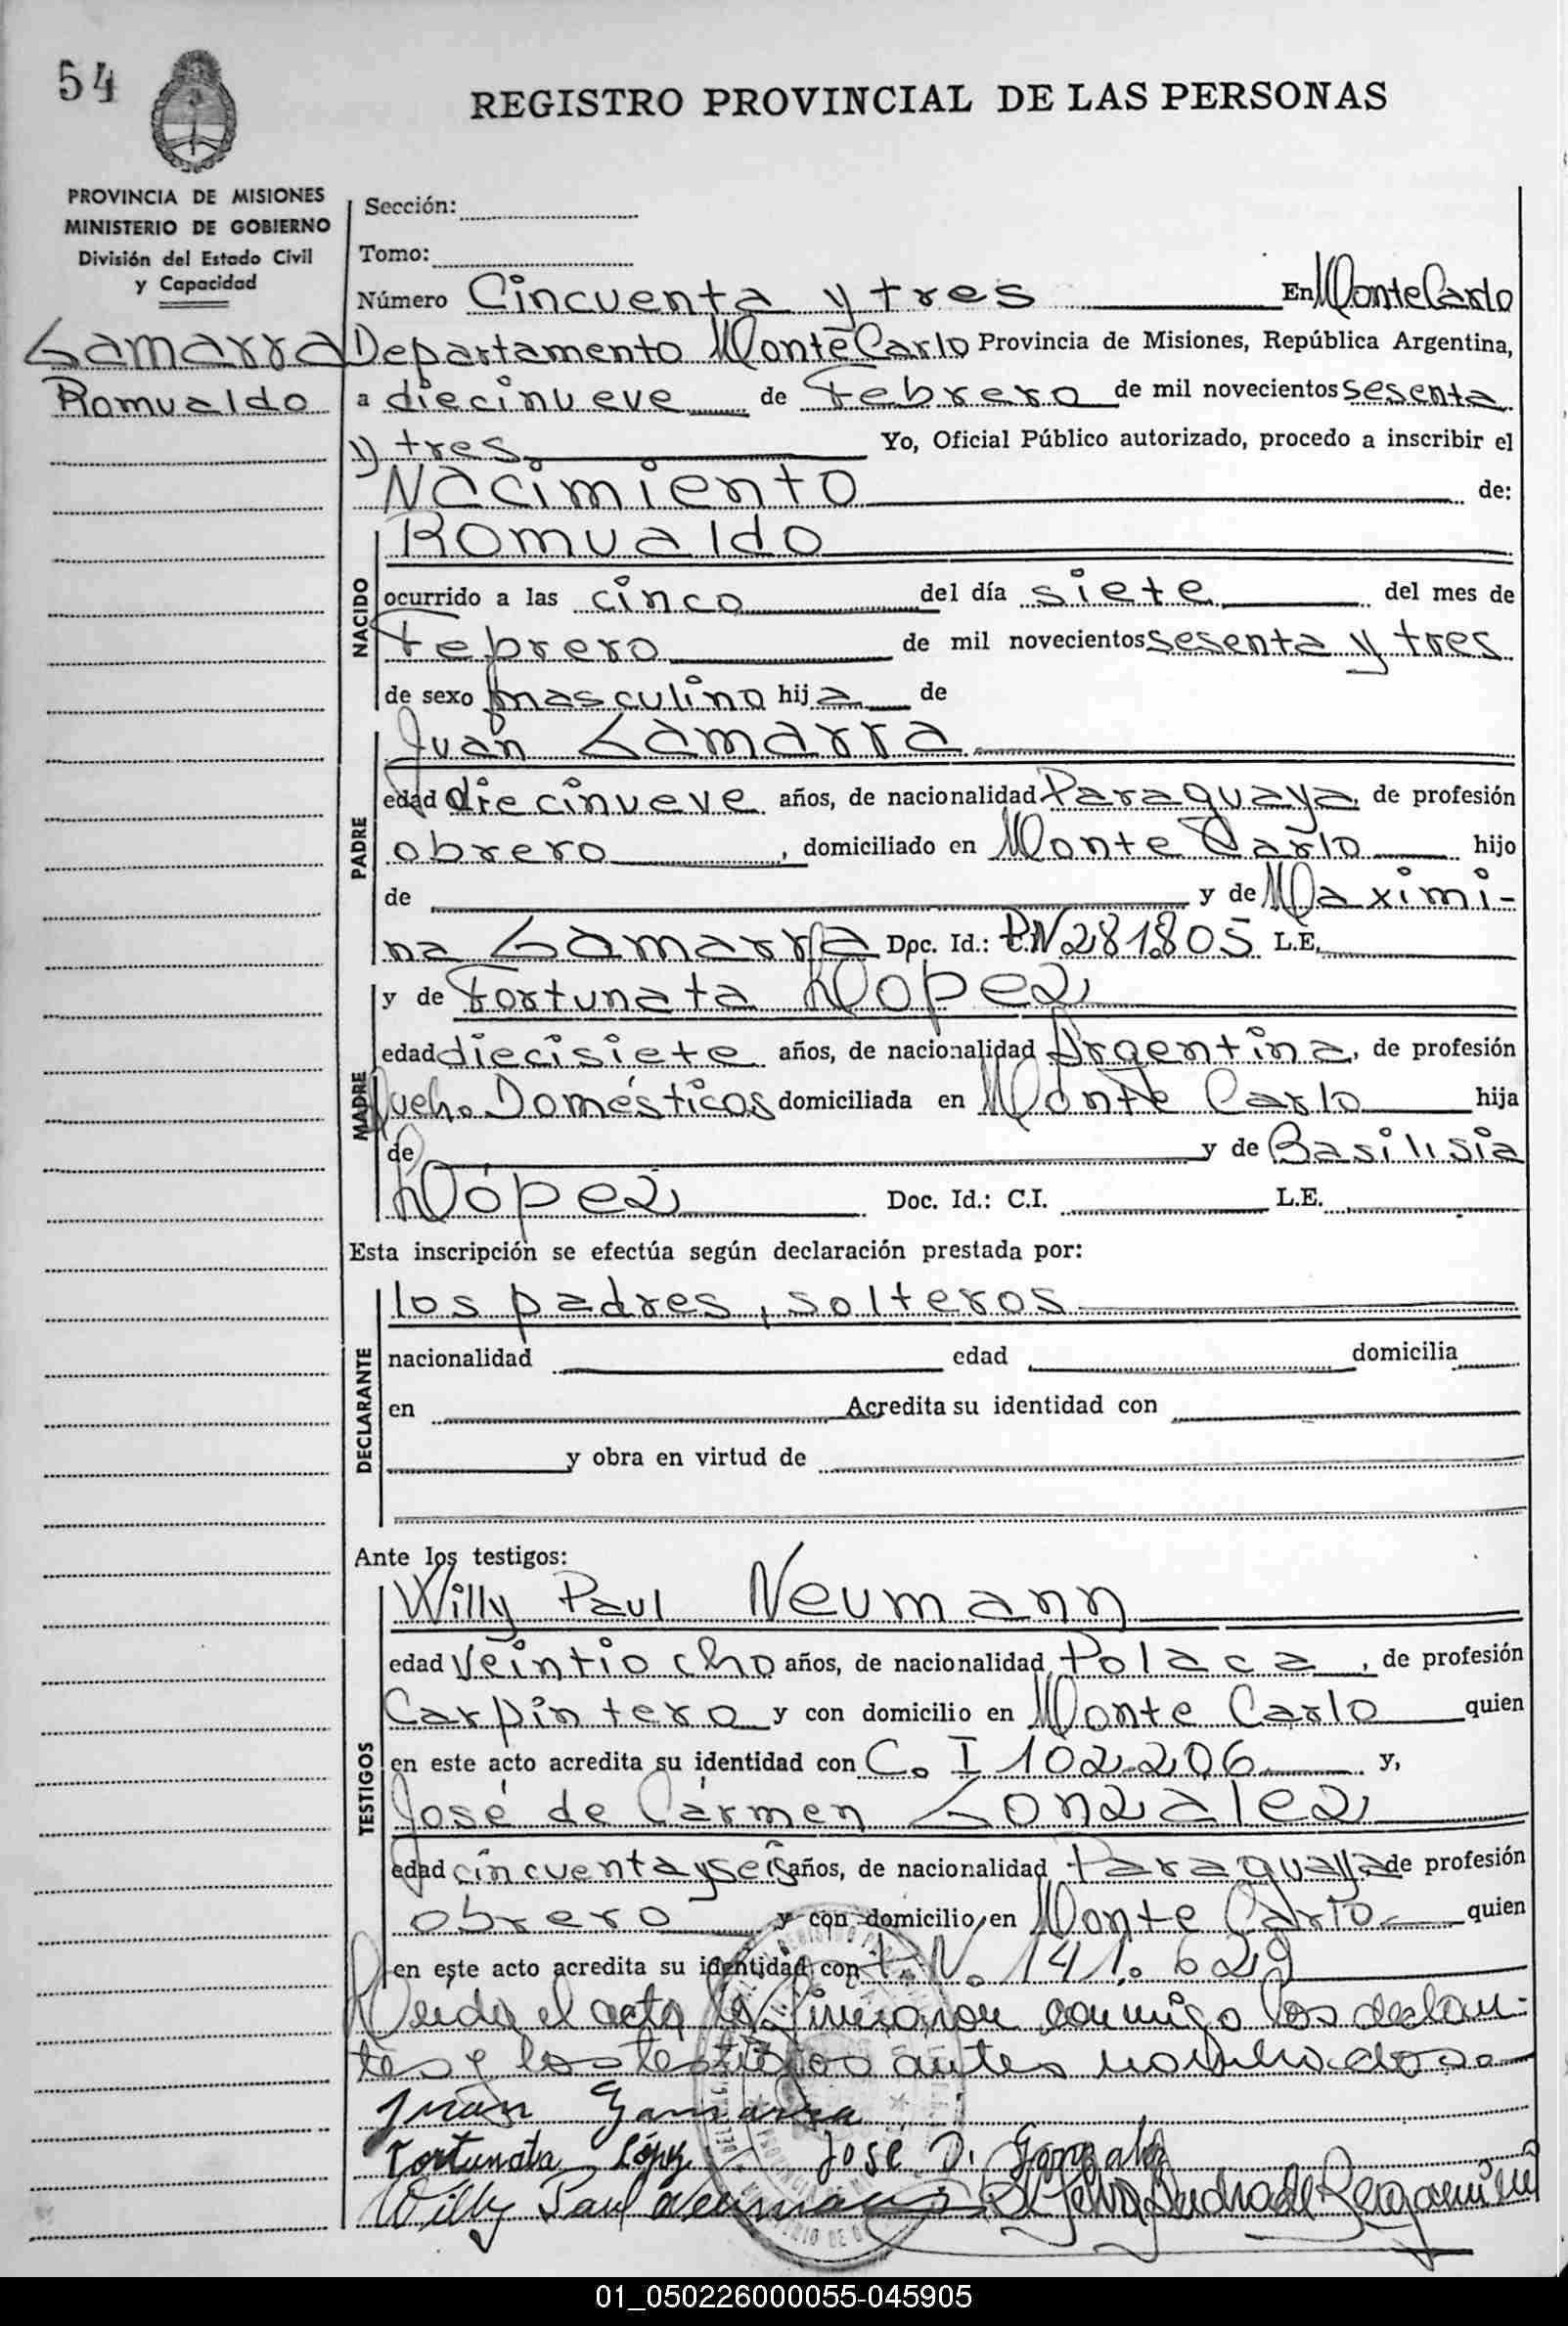 54
REGISTRO PROVINCIAL DE LAS PERSONAS
PROVINCIA DE MISIONES
MINISTERIO DE GOBIERNO
División del Estado Civil
y Capacidad
Gamarra
Romualdo
Sección:
Tomo:
Número Cincuenta y tres En Monte Carlo
Departamento Monte Carlo Provincia de Misiones, República Argentina,
a diecinueve de Febrero de mil novecientos sesenta
y tres Yo, Oficial Público autorizado, procedo a inscribir el
Nacimiento de:
Romualdo
NACIDO
ocurrido a las cinco del día siete del mes de
Febrero de mil novecientos sesenta y tres
de sexo masculino hija de
Juan Gamarra
PADRE
edad diecinueve años, de nacionalidad Paraguaya, de profesión
obrero, domiciliado en Monte Carlo hijo
de y de Maximi-
na Gamarra Doc. Id.: P.N 281.805 L.E.
y de Fortunata López
MADRE
edad diecisiete años, de nacionalidad Argentina, de profesión
Queh. Domésticos domiciliada en Monte Carlo hija
de y de Basilisia
López Doc. Id.: C.I. L.E.
Esta inscripción se efectúa según declaración prestada por:
los padres, solteros
DECLARANTE
nacionalidad edad domicilia
en Acredita su identidad con
y obra en virtud de
Ante los testigos:
Willy Paul Neumann
TESTIGOS
edad veintiocho años, de nacionalidad Polaca, de profesión
Carpintero y con domicilio en Monte Carlo quien
en este acto acredita su identidad con C. I 102.206 y,
José de Carmen Gonzalez
edad cincuenta y seis años, de nacionalidad Paraguaya de profesión
obrero y con domicilio en Monte Carlo quien
en este acto acredita su identidad con P.N. 141.629
Leída el acta la firmaron conmigo los declan-
tes y los testigos antes nombrados.
Juan Gamarra
Fortunata López José D. Gonzalez
Willy Paul Neumann
01_050226000055-045905